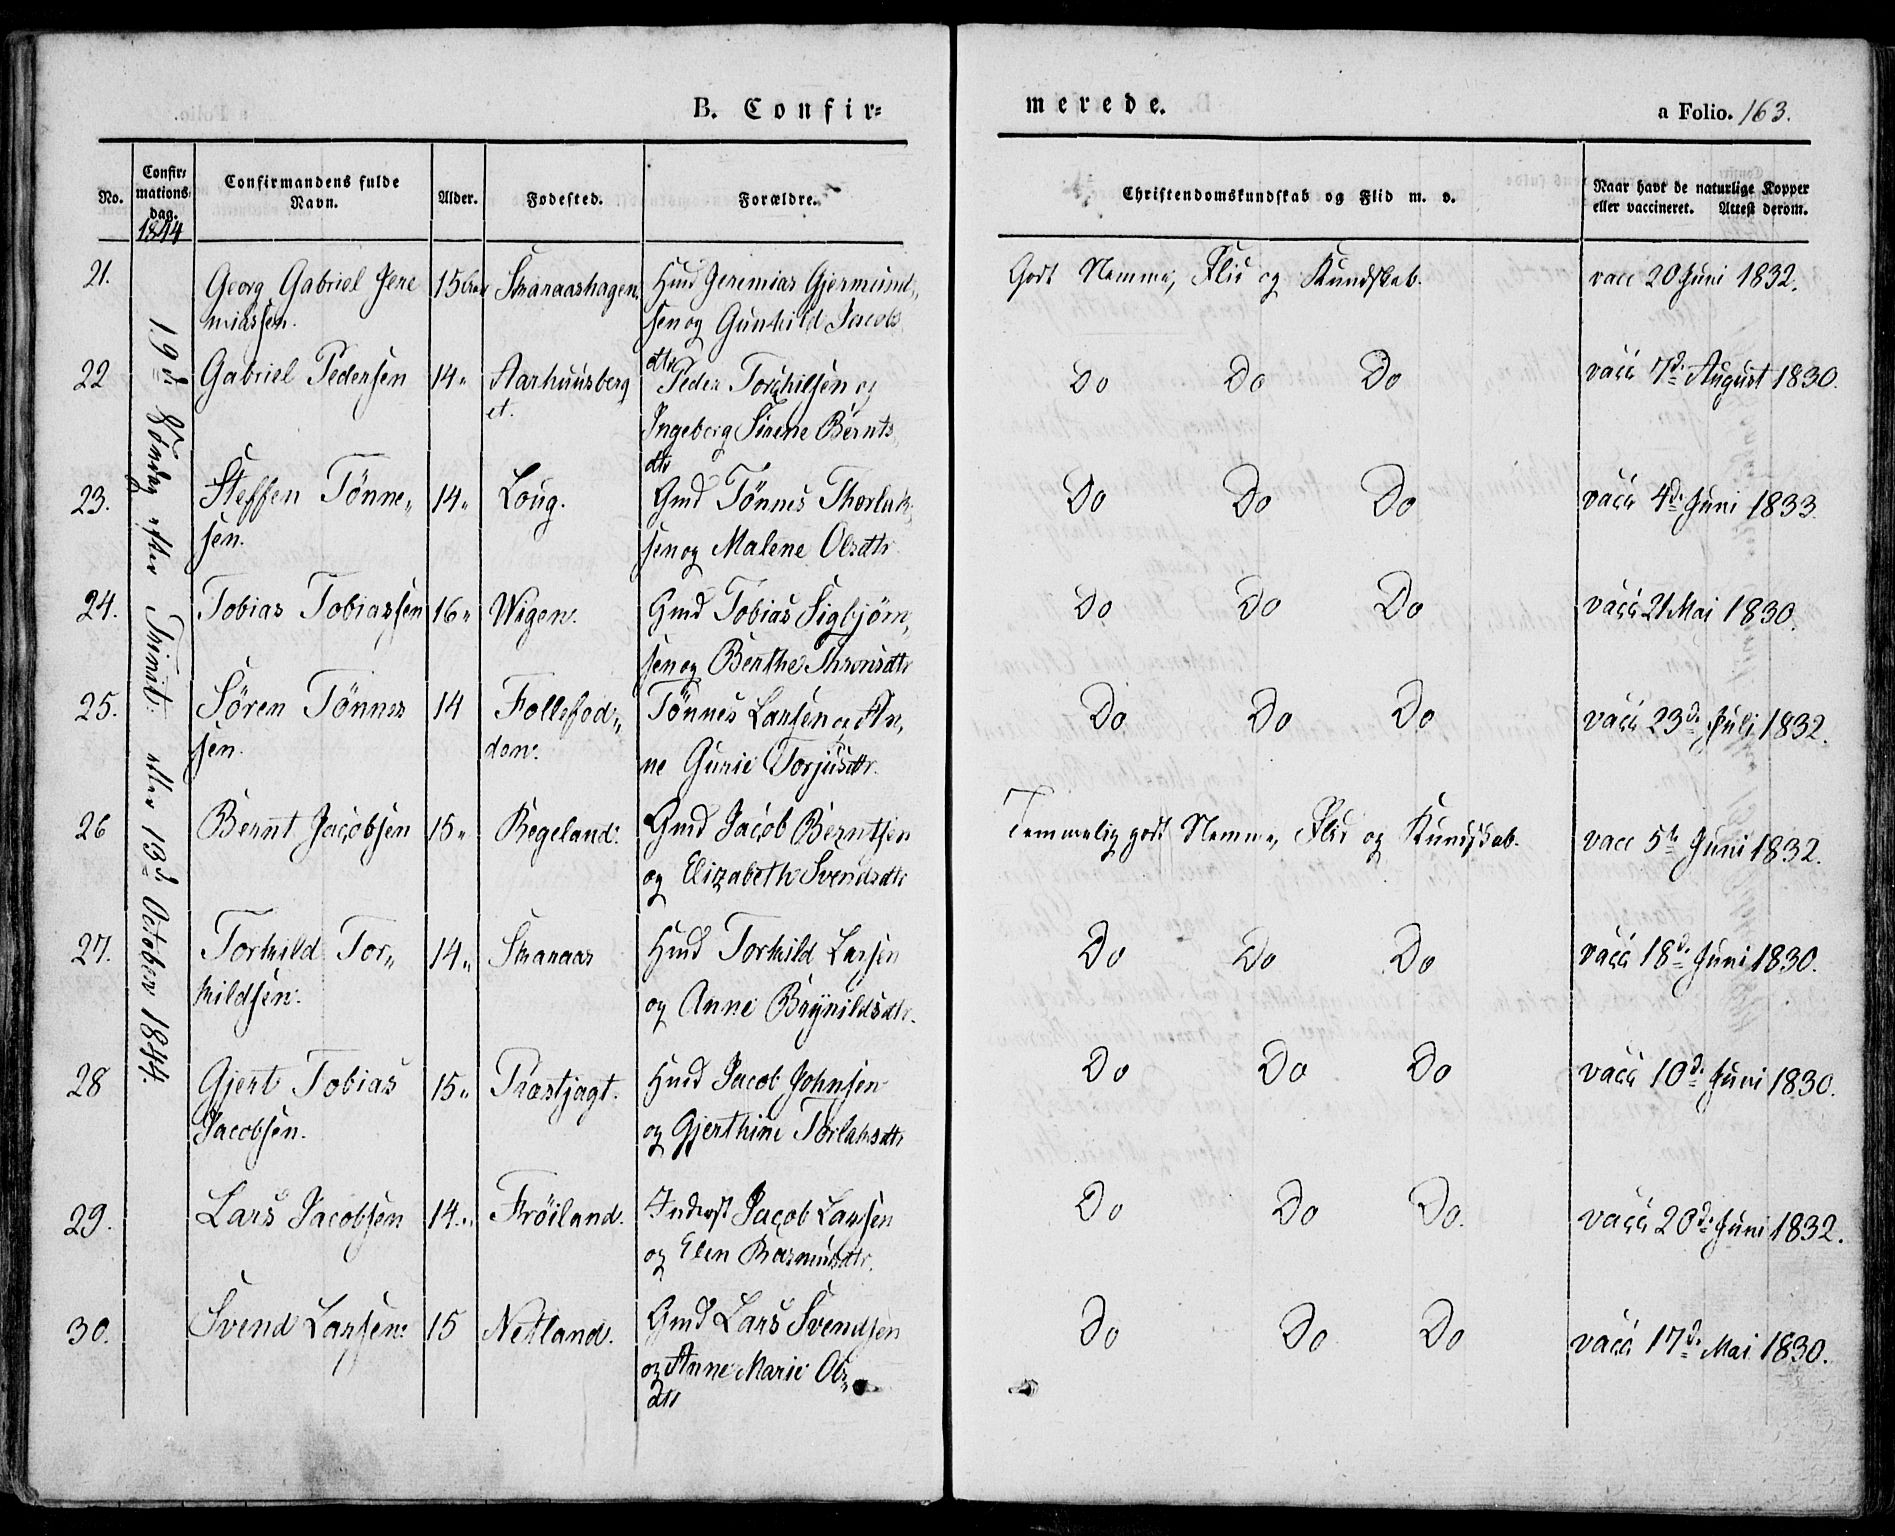 B. Confir=
merede.
a Folio. 163.
No.
Confir=
mations
dag.
1844
Confirmandens fulde
Navn.
Alder.
Fødested.
Forældre.
Christendomskundskab og Flid m. v.
Naar havt de naturlige Kopper
eller vaccineret. Attest derom.
19de Søndag efter Trinit: eller 13de October 1844.
21.
Georg Gabriel Jere
miassen.
15
Skranaashagen.
Huusmd Jeremias Gjermund„
sen og Gunhild Jacobs
dtr
Godt Nemme, Flid og Kundskab.
vacc 20 Juni 1832.
22
Gabriel Pedersen
14"
Aarhuusberg
et.
Peder Torkilsen og
Ingeborg Sirene Bernts
dtr
Do Do Do
vacc 7de August 1830.
23.
Steffen Tönne„
sen.
14"
Loug.
Gmd Tönnes Thorlak
sen og Malene Olsdtr
Do Do Do
vacc 4de Juni 1833.
24.
Tobias Tobiassen
16"
Wigen.
Gmd Tobias Sigbjörn„
sen og Berthe Thronsdtr
Do Do Do
vacc 21 Mai 1830.
25.
Sören Tönnes
sen.
14
Follesod„
den.
Tönnes Larsen og An„
ne Gurie Torjusdtr.
Do Do Do
vacc 23de Juli 1832.
26
Bernt Jacobsen
15"
Regeland.
Gmd Jacob Berntsen
og Elizabeth Svendsdtr
Temmelig godt Nemme, Flid og Kundskab.
vacc 5te Juni 1832.
27.
Torkild Tor„
kildsen.
14"
Skranaas
Hmd Torkild Larsen
og Anne Brynildsdtr.
Do Do Do
vacc 18de Juni 1830.
28
Gjert Tobias
Jacobsen.
15"
Præstjagt.
Hmd Jacob Johnsen
og Gjerthine Torlaksdtr
Do Do Do
vacc 10de Juni 1830.
29.
Lars Jacobsen
14"
Fröiland.
Inderst Jacob Larsen
og Elen Rasmusdtr.
Do Do Do.
vacc 20de Juni 1832.
30.
Svend Larsen
15
Netland.
Gmd Lars Svendsen
og Anne Marie Ols„
dtr
Do Do Do
vacc 17de Mai 1830.